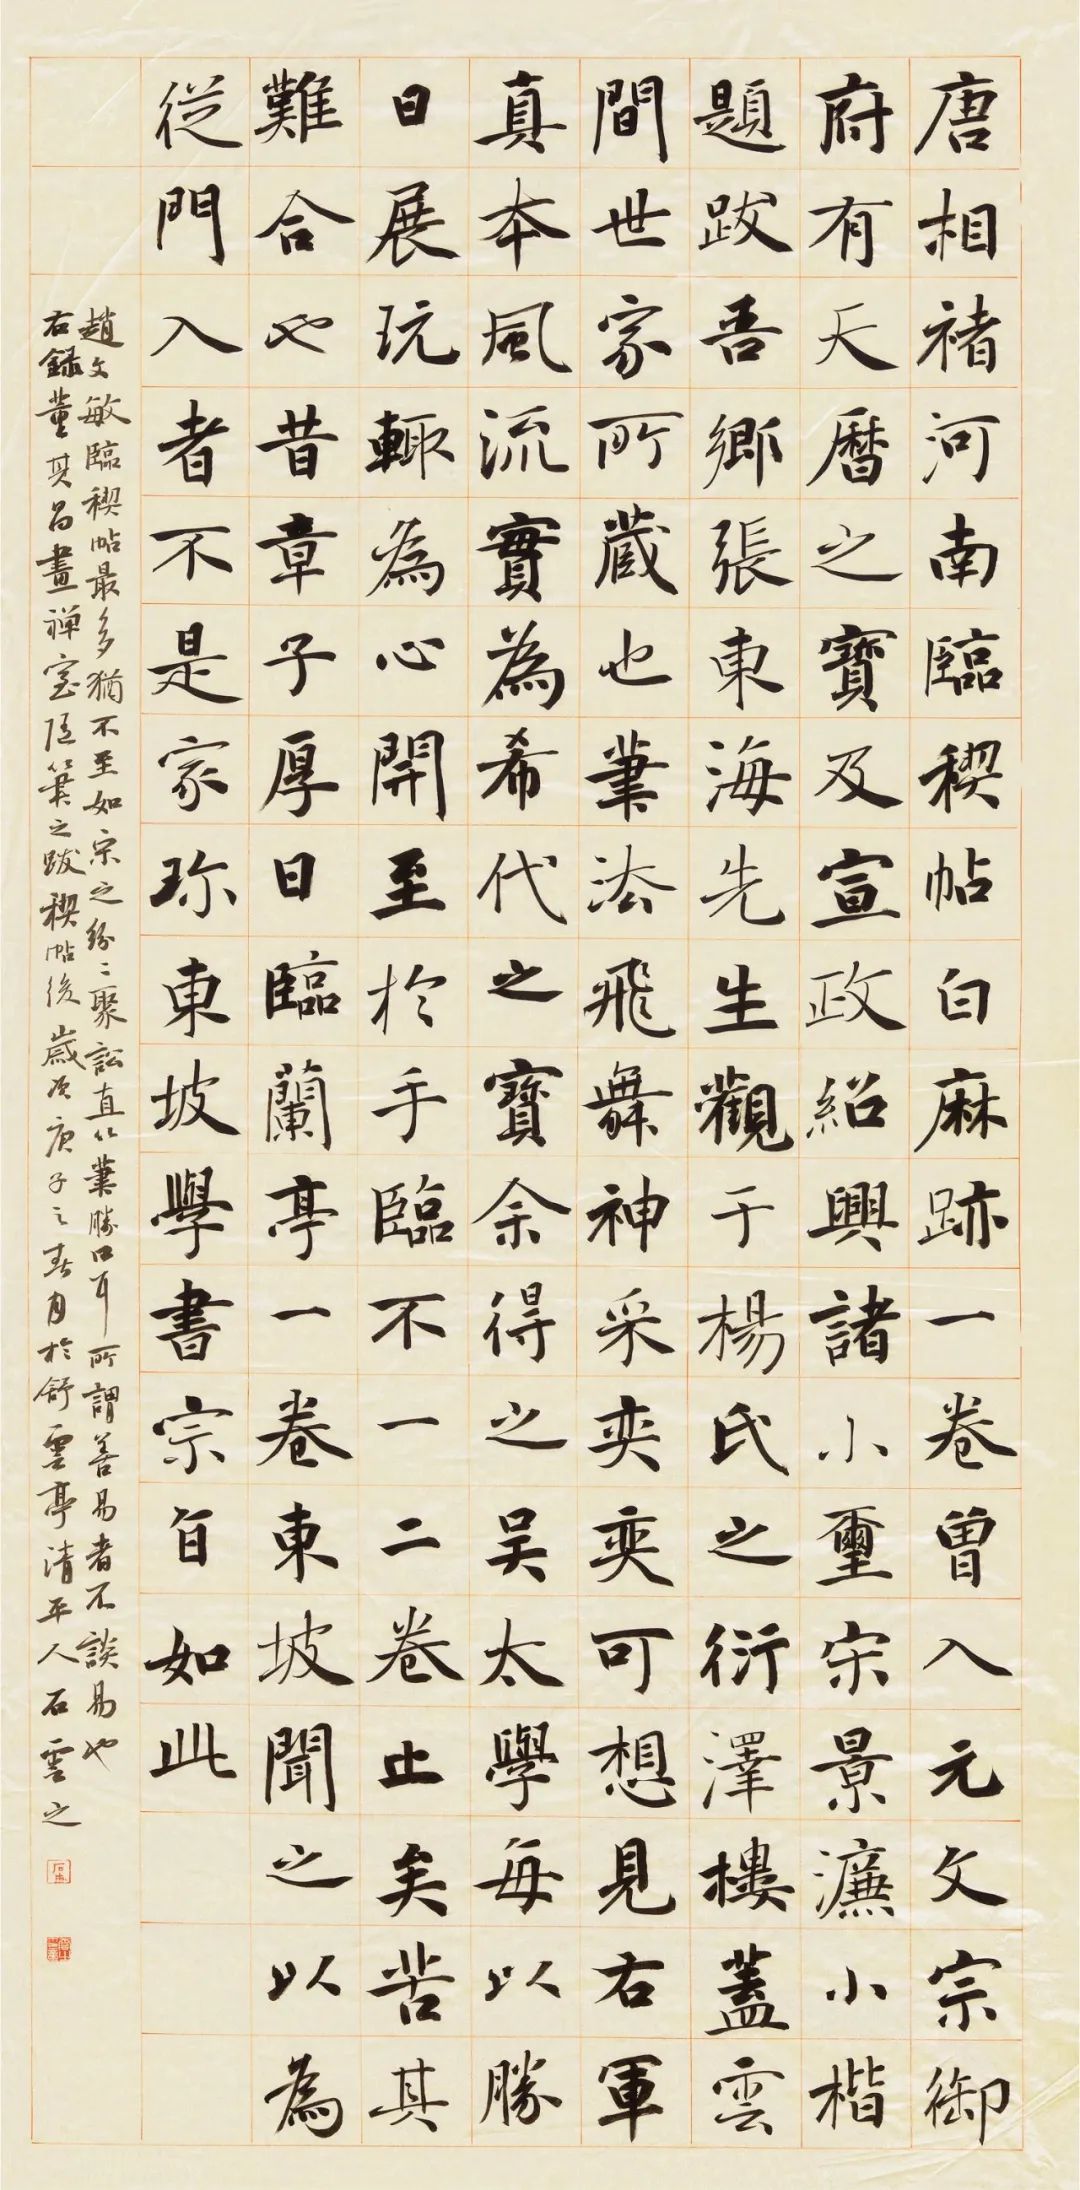 唐相褚河南臨禊帖白麻跡一卷曾入元文宗御
府有天曆之寶及宣政紹興諸小璽宋景濂小楷
題跋吾鄉張東海先生觀于楊氏之衍澤樓蓋雲
間世家所蔵也筆法飛舞神采奕奕可想見右軍
真本風流實為希代之寶余得之吴太學每以勝
日展玩輙為心開至於手臨不一二卷止矣苦其
難合也昔章子厚日臨蘭亭一卷東坡聞之以為
從門入者不是家珎東坡學書宗旨如此
趙文敏臨禊帖最多猶不至如宋之紛〻聚訟直以筆勝口耳所謂善易者不談易也
右録董其昌畫禅室随筆之跋禊帖後歲次庚子之春月於舒雲亭清平人石雲之